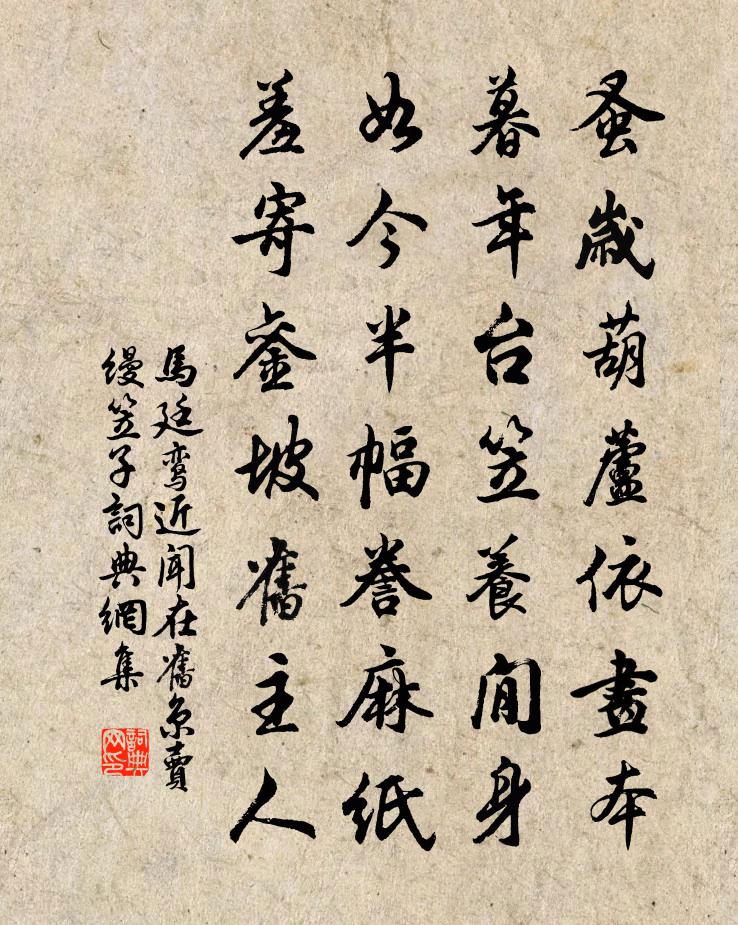 蚤歲葫蘆依畫本
暮年台笠養閒身
如今半幅謄麻紙
羞寄鑾坡舊主人
馬廷鸞近聞在舊京賣
縵笠子詞典網集
詞典网印